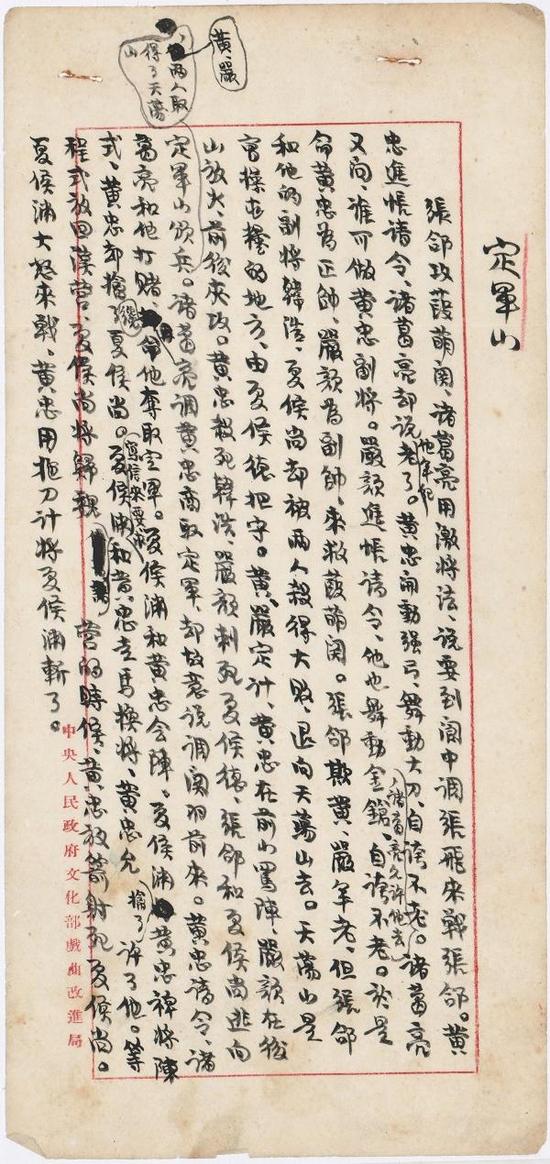 定軍山
張郃攻葭萌関、諸葛亮用激将法、説要到閬中調張飛来戰張郃。黃
忠進帳請令、諸葛亮却説他年紀老了。黃忠開動强弓、舞動大刀、自誇不老。諸葛亮
又问、谁可做黃忠副将。嚴顏進帳請令、他也舞動金鎗、自誇不老。諸葛亮允許他去、於是
命黃忠為正帥、嚴顏為副帥、来救葭萌関。張郃欺黃、嚴年老、但張郃
和他的副将韓浩、夏侯尚却被兩人殺得大敗、退向天蕩山去。天蕩山是
曹操屯糧的地方、由夏侯德把守。黃、嚴定计、黃忠在前山罵陣、嚴顏在後
山放火、前後夾攻。黃忠殺死韓浩、嚴顏刺死夏侯德、張郃和夏侯尚逃向
定軍山
黃、嚴
兩人取得了天蕩山
諸葛亮調黃忠商取定軍、却故意说調関羽前来。黃忠請令、諸
葛亮和他打賭、命他奪取定軍。夏侯淵和黃忠会陣。夏侯淵擒了黃忠裨将陳
式、黃忠却擒了夏侯尚。夏侯淵寫信来要求和黃忠走馬換将、黃忠允許了他。等
程式放回漢营、夏侯尚将歸魏营的時候、黃忠放箭射死夏侯尚。
夏侯淵大怒来戰、黃忠用拖刀计将夏侯淵斬了。
中央人民政府文化部戲曲改進局